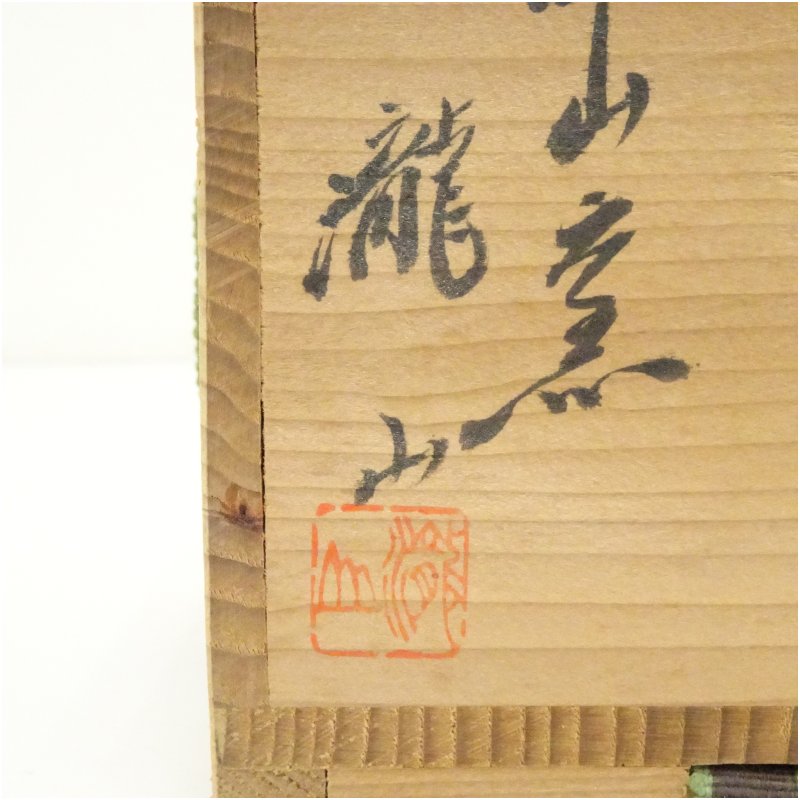 山窯
瀧山